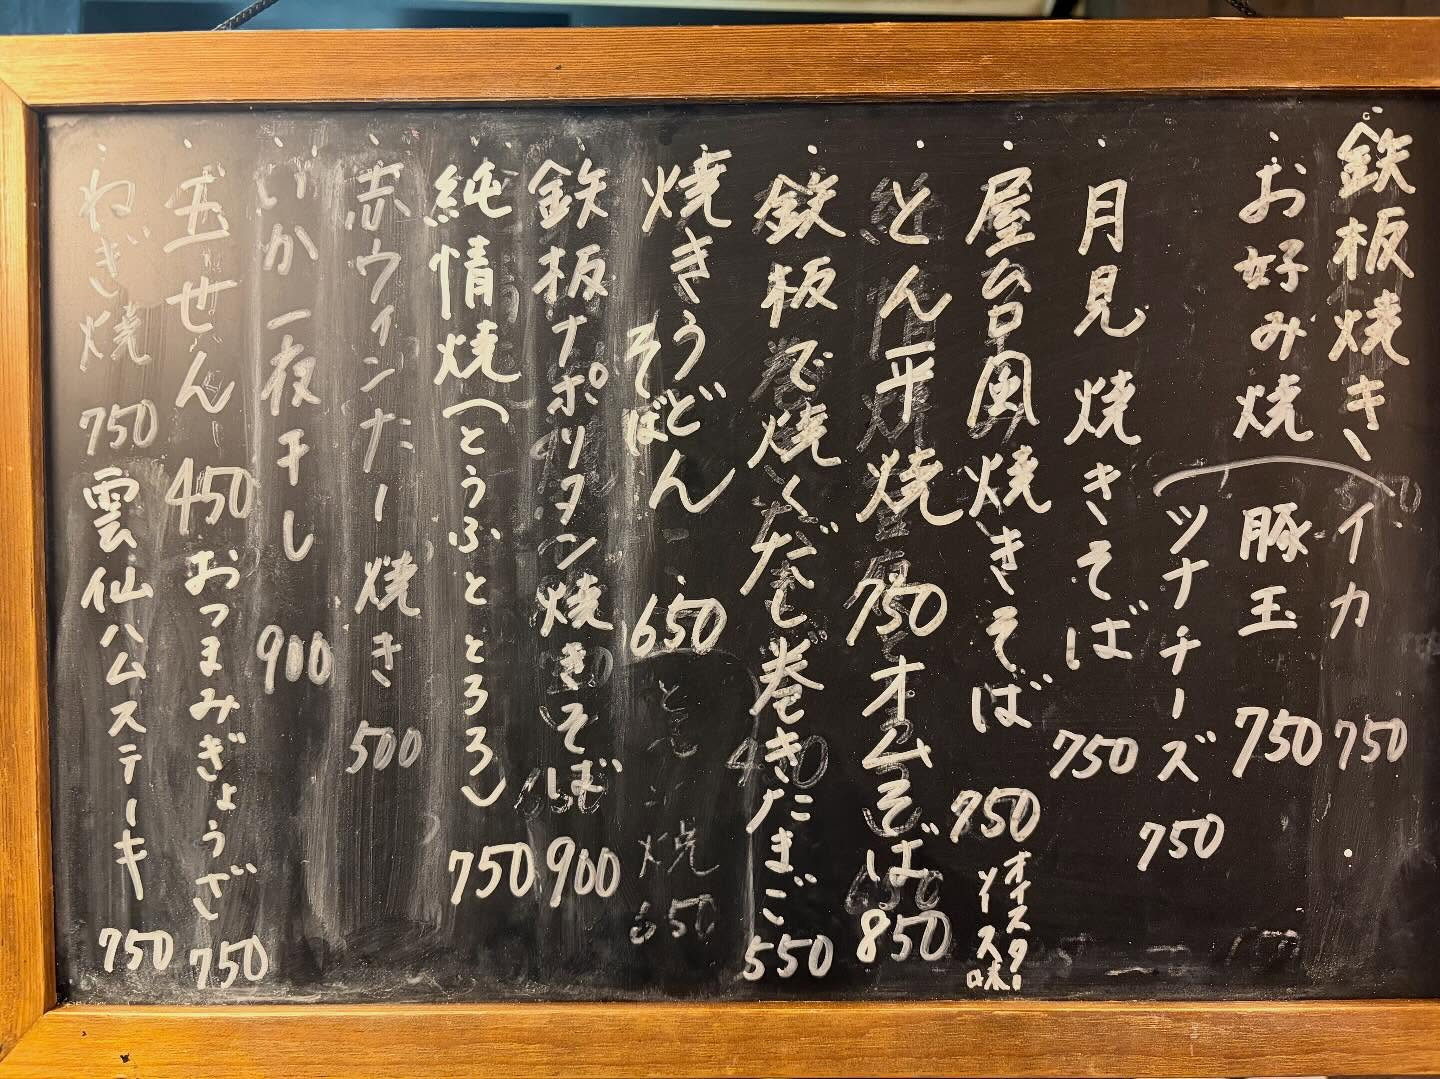 鉄板焼き
お好み焼
イカ 750
豚玉 750
ツナチーズ 750
月見焼きそば 750
屋台風焼きそば 750
オイスター
ソース味
とん平焼 750
オムそば 850
鉄板で焼くだし巻きたまご 550
焼きうどん 650
そばん
鉄板ナポリタン焼きそば 900
純情焼(とうふととろろ) 750
赤ウィンナー焼き 500
いか一夜干し 900
玉せん 450
おつまみぎょうざ 750
ねぎ焼 750
雲仙ハムステーキ 750